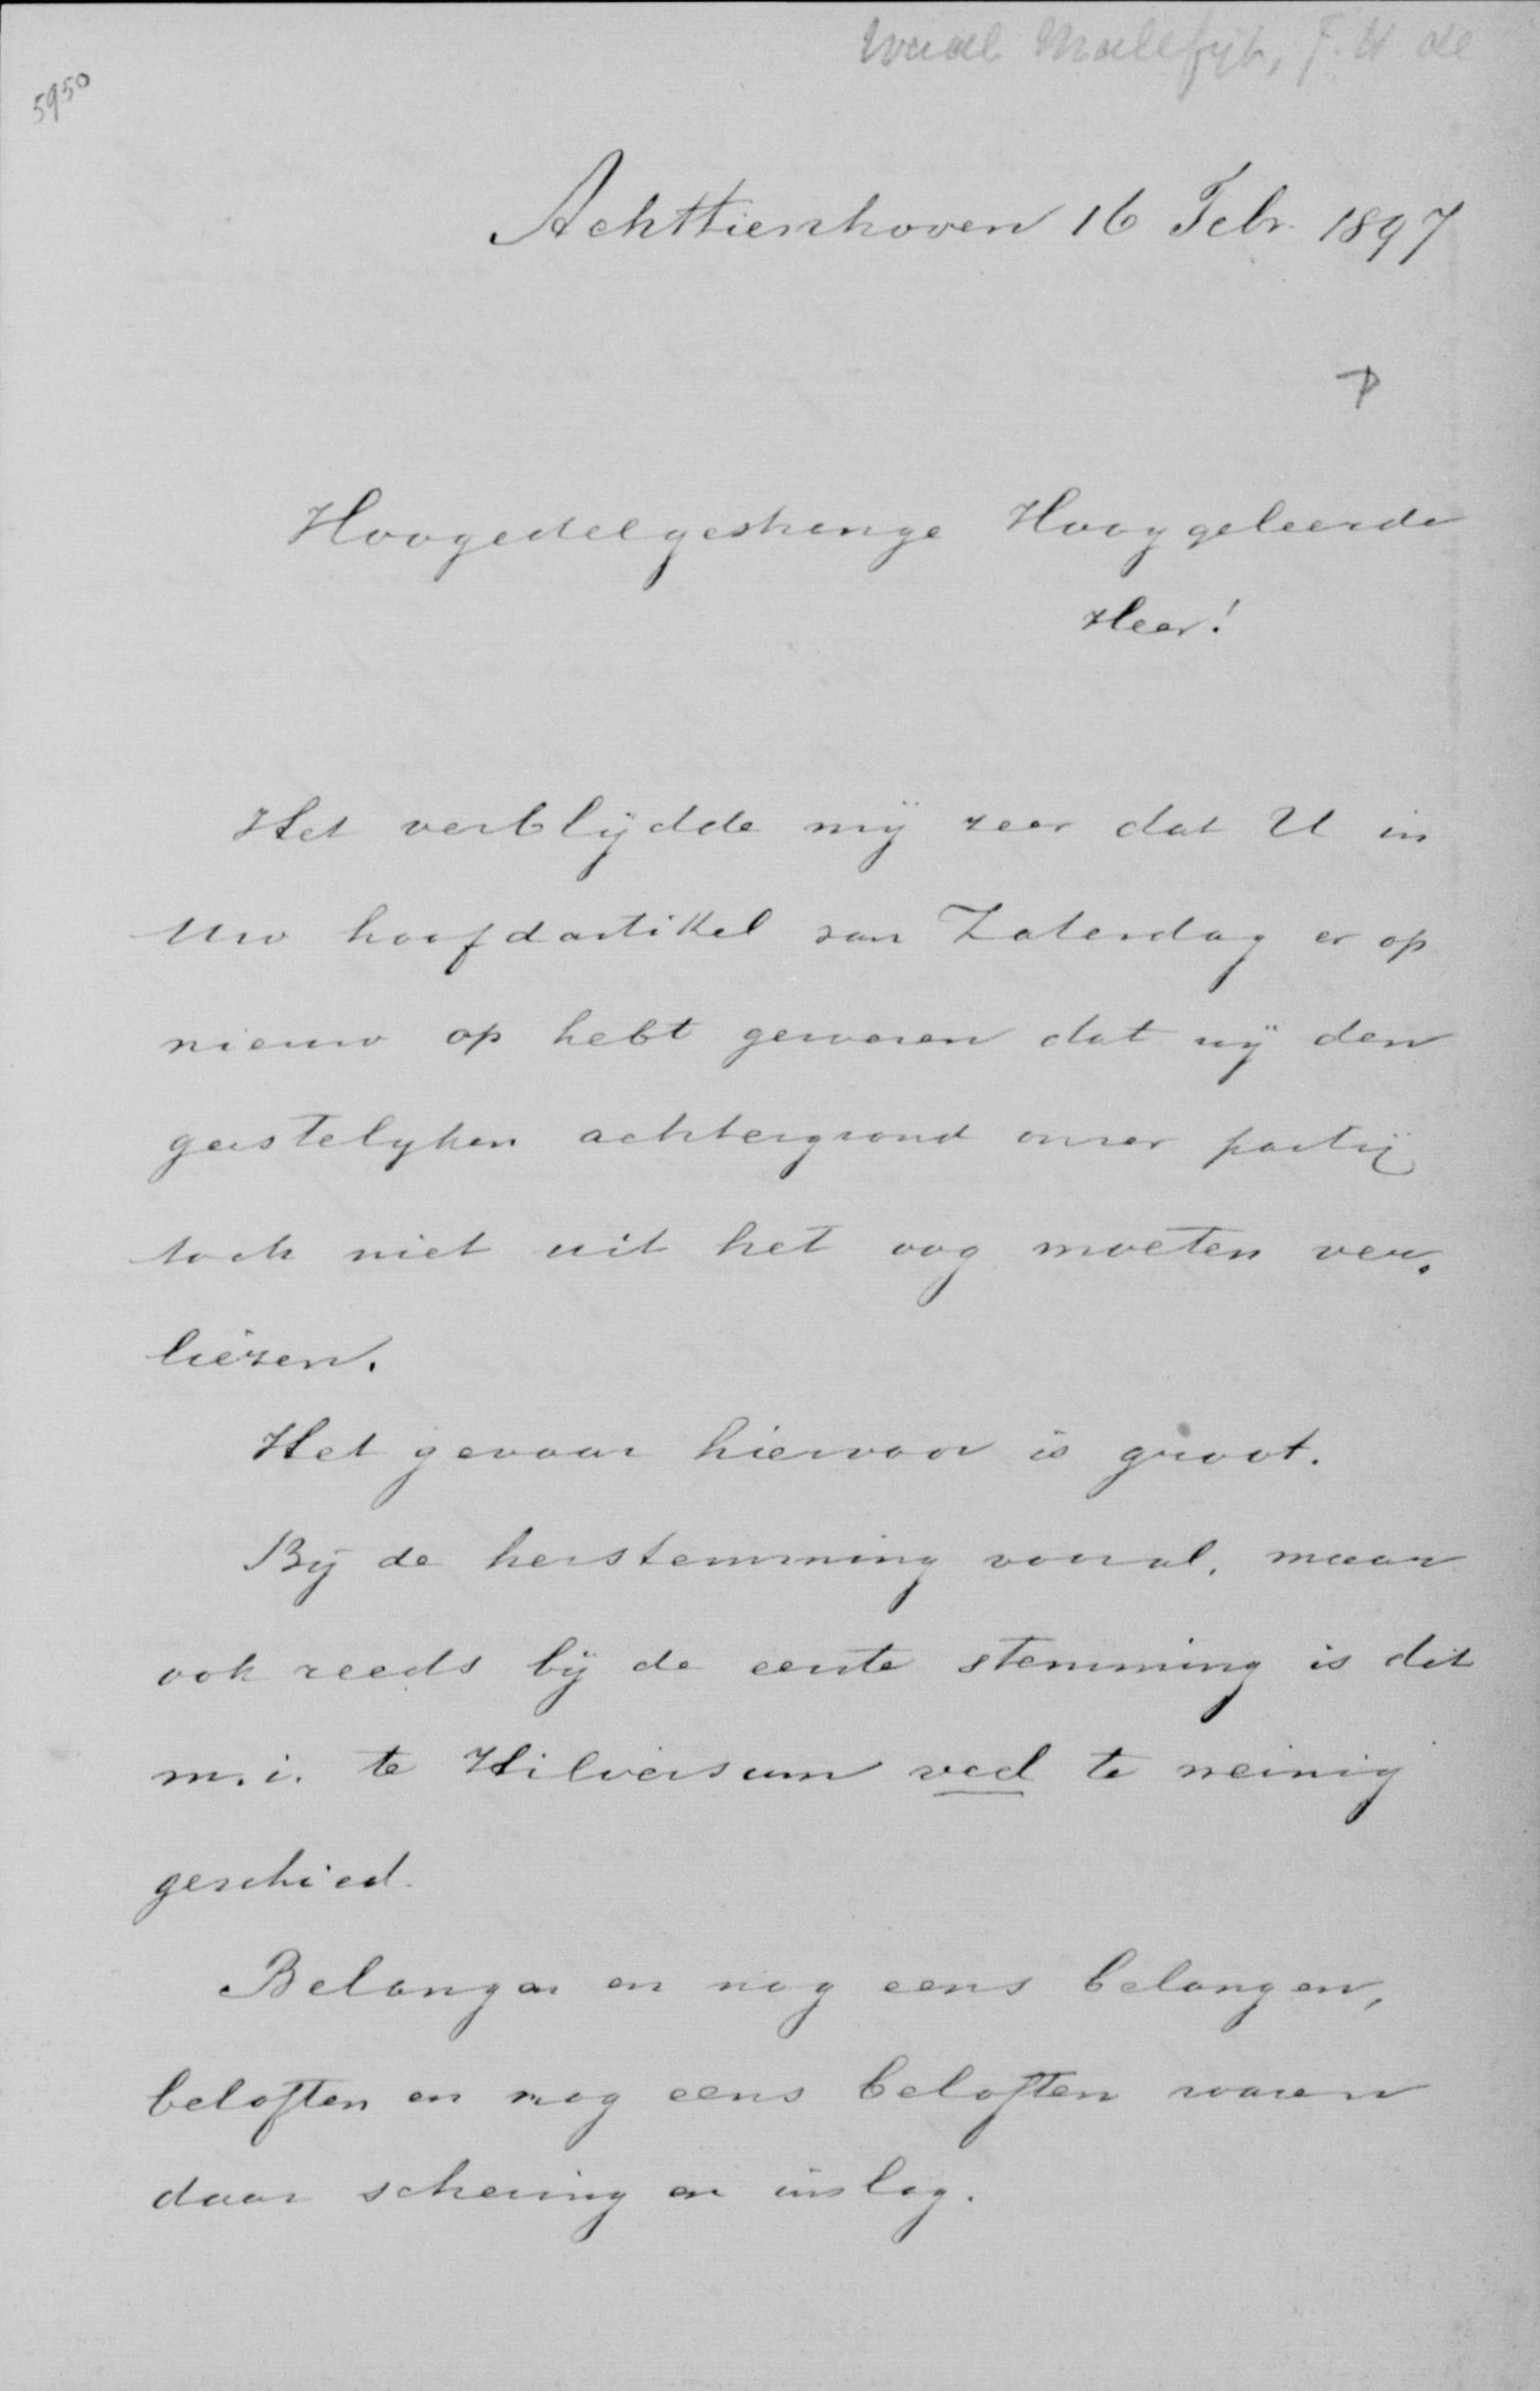 Waal Malefijt, J. H. de
5950
Achttienhoven 16 Febr. 1897
P
Hoogedelgestrenge Hooggeleerde
Heer!
Het verblijdde mij zeer dat U in
Uw hoofdartikel van Zaterdag er op
nieuw op hebt gewezen dat wij den
geestelijken achtergrond onzer partij
toch niet uit het oog moeten ver-
liezen.
Het gevaar hiervoor is groot.
Bij de herstemming vooral, maar
ook reeds bij de eerste stemming is dit
m.i. te Hilversum veel te weinig
geschied.
Belangen en nog eens belangen,
beloften en nog eens beloften waren
daar schering en inslag.